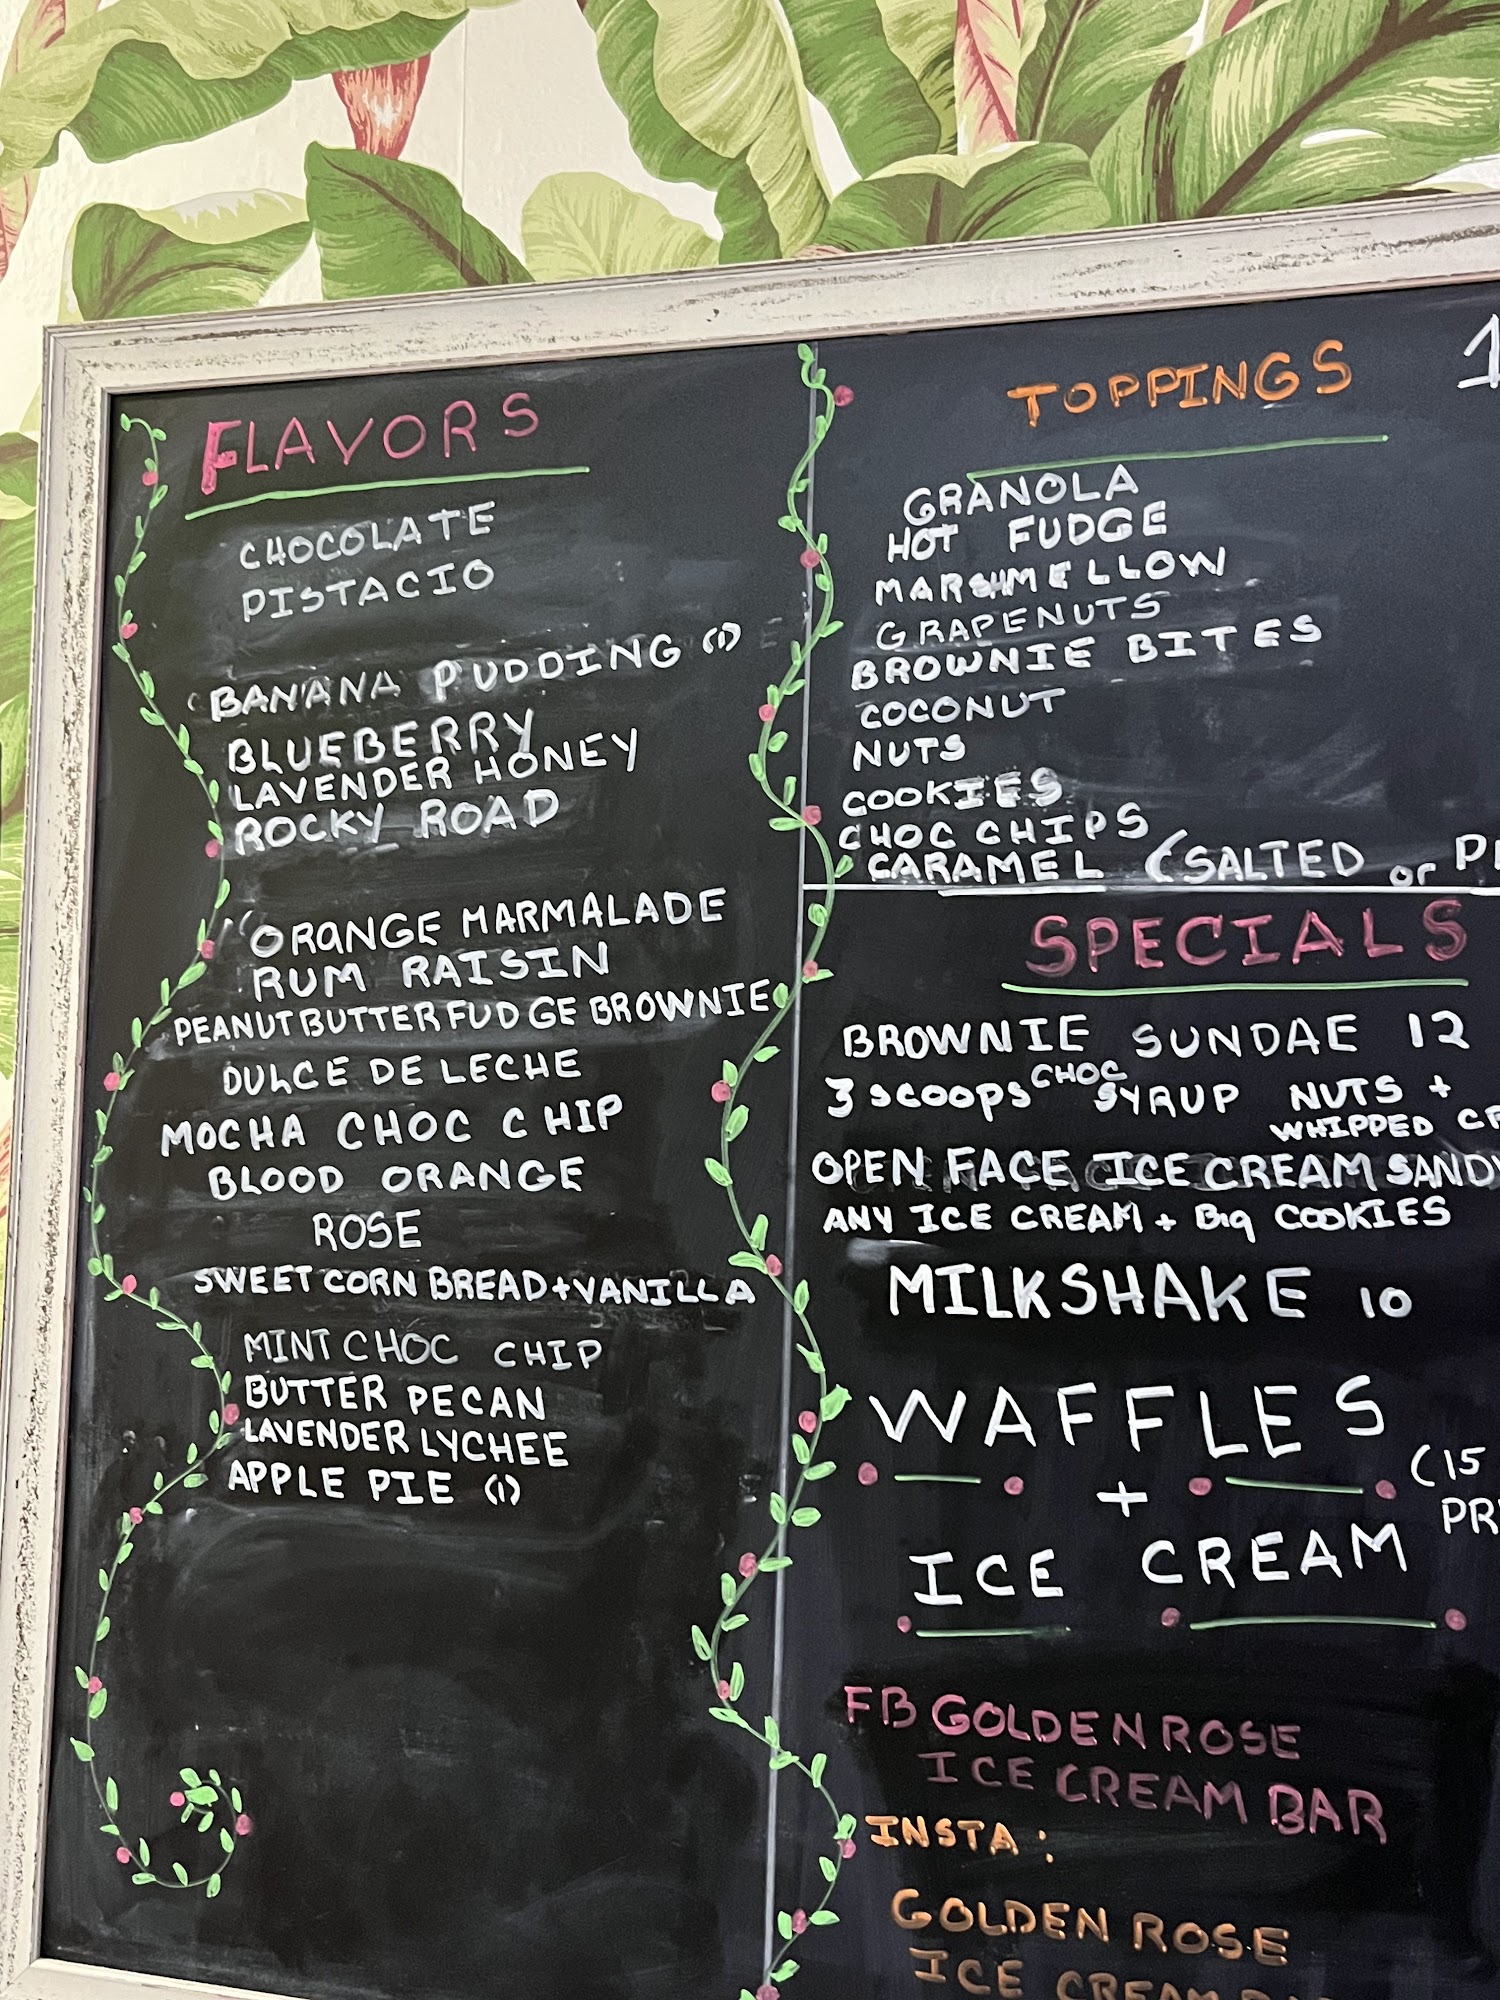 FLAVORS
CHOCOLATE
PISTACIO
BANANA PUDDING (1)
BLUEBERRY
LAVENDER HONEY
ROCKY ROAD
ORANGE MARMALADE
RUM RAISIN
PEANUT BUTTER FUDGE BROWNIE
DULCE DE LECHE
MOCHA CHOC CHIP
BLOOD ORANGE
ROSE
SWEET CORN BREAD + VANILLA
MINT CHOC CHIP
BUTTER PECAN
LAVENDER LYCHEE
APPLE PIE (1)
TOPPINGS 1
GRANOLA
HOT FUDGE
MARSHMELLOW
GRAPENUTS
BROWNIE BITES
COCONUT
NUTS
COOKIES
CHOC CHIPS
CARAMEL (SALTED or
SPECIALS
BROWNIE SUNDAE 12
3 SCOOPS CHOC SYRUP NUTS +
WHIPPED
OPEN FACE ICE CREAM
ANY ICE CREAM + Big COOKIES
MILKSHAKE 10
WAFFLES
+
(15
ICE CREAM
FB GOLDEN ROSE
ICE CREAM BAR
INSTA:
GOLDEN ROSE
ICE CREAM